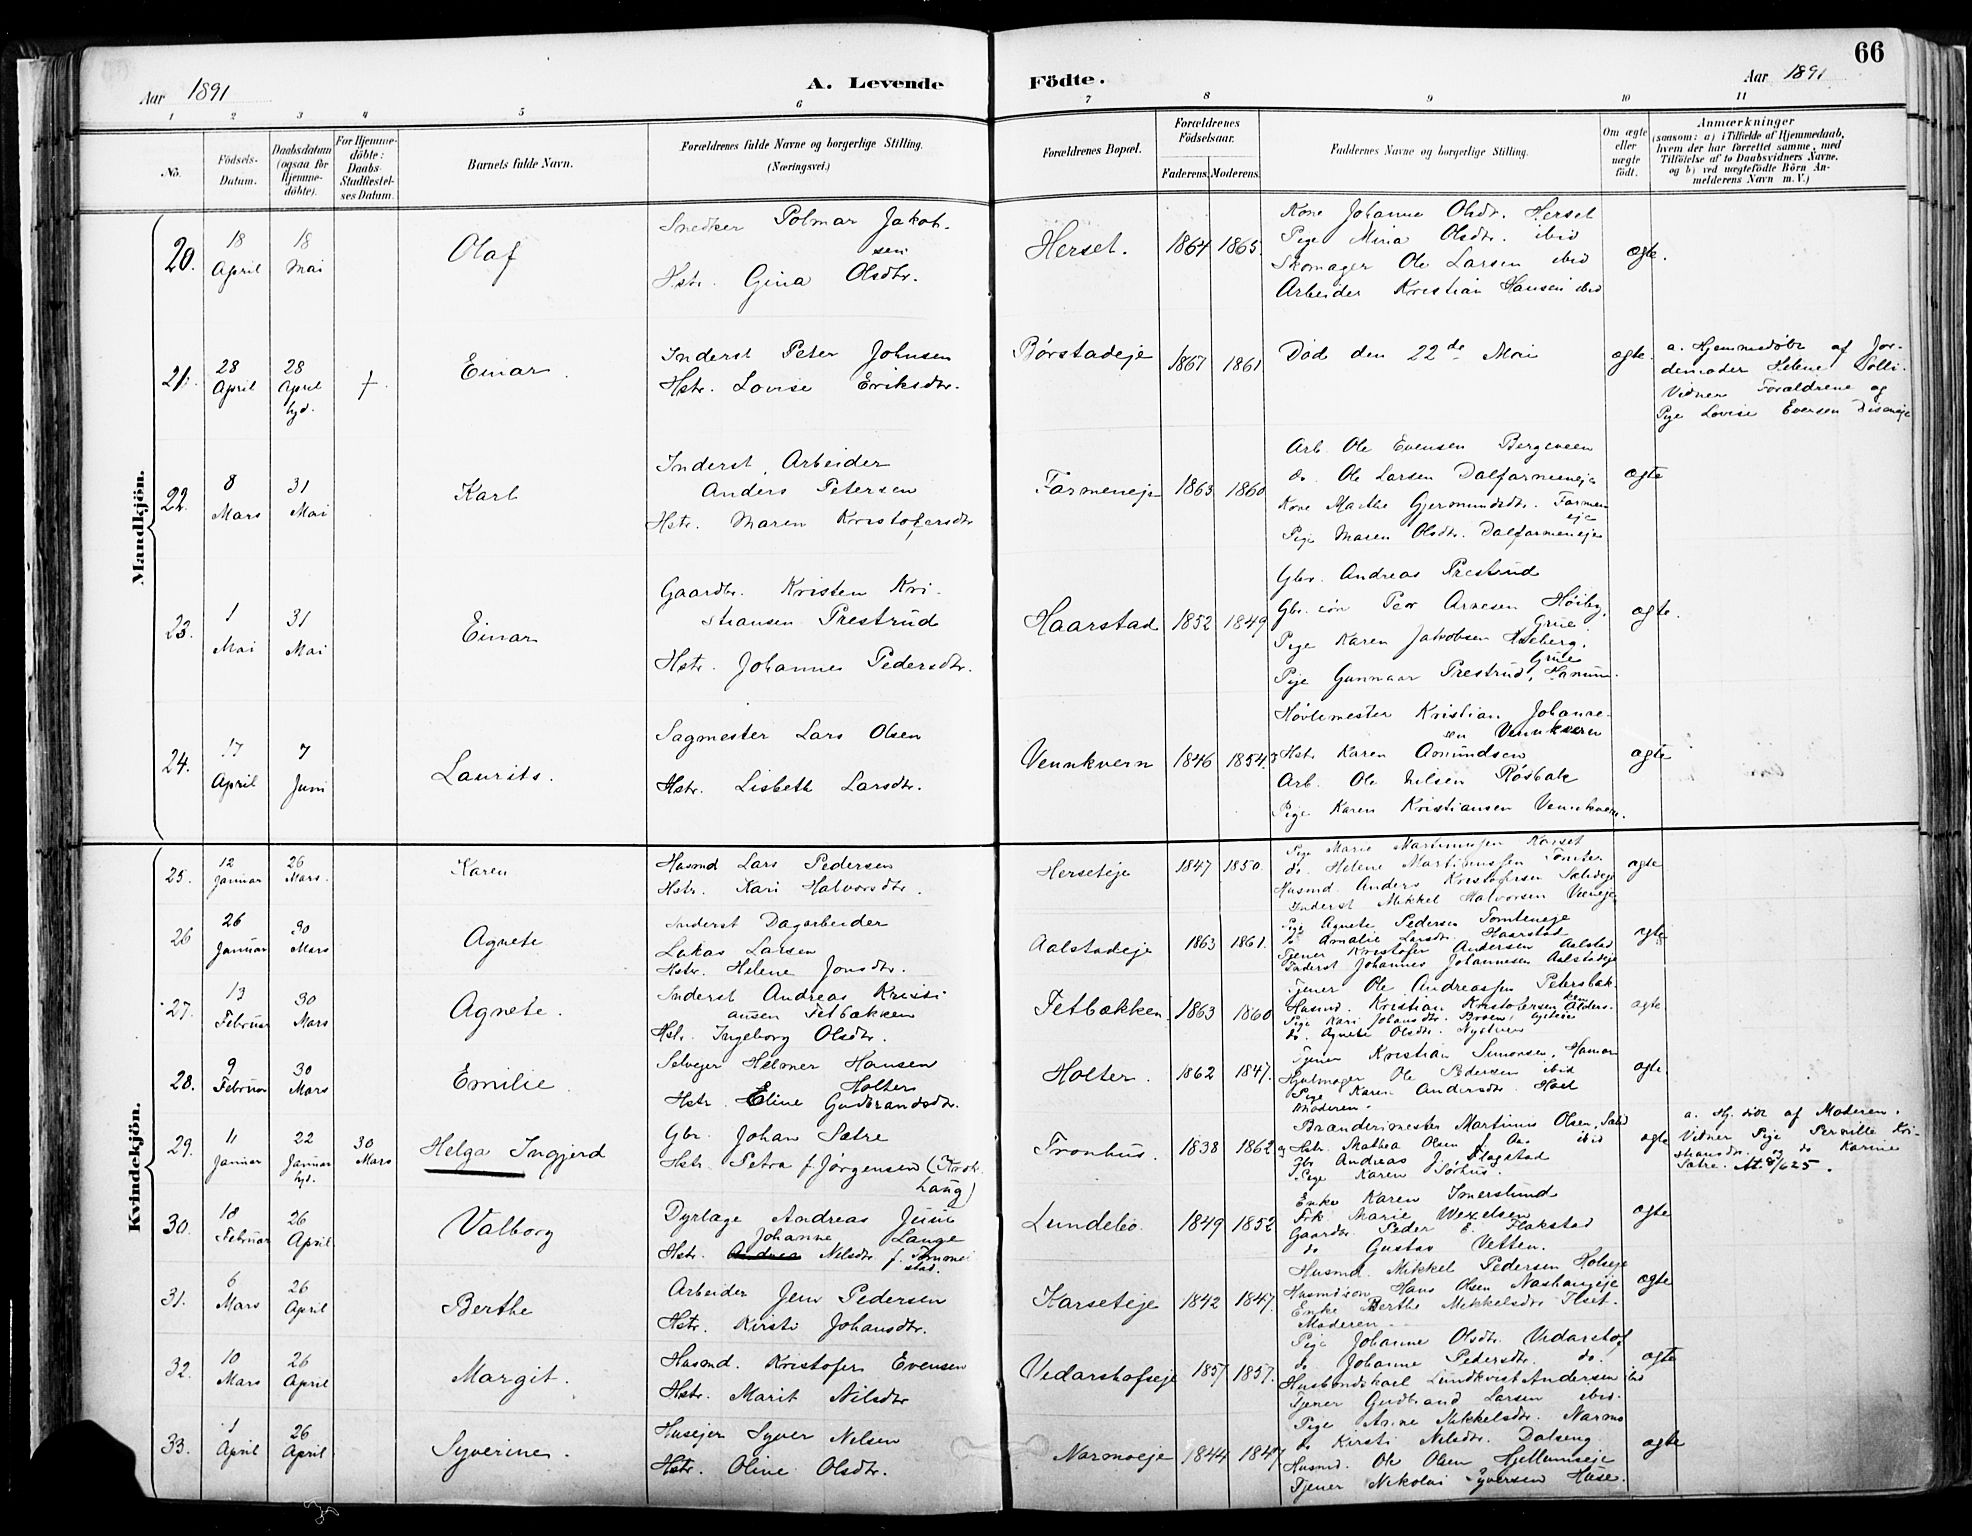 66
Aar 1891
A. Levende
Födte.
Aar 1891
1 2 3 4 5 6 7 8 9 10 11
No.
Födsels-
Datum.
Daabsdatum
(ogsaa for
Hjemme-
döbte).
For Hjemme-
döbte:
Daabs-
Stadfæstel-
ses Datum.
Barnets fulde Navn.
Forældrenes fulde Navne og borgerlige Stilling.
(Næringsvei.)
Forældrenes Bopæl.
Forældrenes
Födselsaar.
Faderens. Moderens.
Faddernes Navne og borgerlige Stilling.
Om ægte
eller
uægte
födt.
Anmærkninger
(saasom: a) i Tilfælde af Hjemmedaab,
hvem der har forrettet samme, med
Tilföielse af to Daabsvidners Navne,
og b) ved uægtefödte Börn An-
melderens Navn m. V.)
Mandkjön.
20.
18
April
18
Mai
Olaf
Snedker Polmar Jakob-
sen
Hstr. Gina Olsdtr.
Herset.
1864 1865.
Kone Johanne Olsdtr. Herset
Pige Mina Olsdtr. ibid
Skomager Ole Larsen ibid
Arbeider Kristian Hansen ibid
ægte.
21.
28
April
28
April
hjd.
†
Einar.
Inderst Peter Johnsen
Hstr. Lovise Eriksdtr.
Børstadeje
1867 1861
Død den 22de Mai
ægte.
a. Hjemmedøbt af Jor-
demoder Helene Solli.
Vidner Forældrene og
Pige Lovise Evensen Diseneje
22.
8
Mars
31
Mai
Karl
Inderst, Arbeider
Anders Petersen
Hstr. Maren Kristofersdtr
Farmeneje
1863 1860
Arb. Ole Evensen Bergeveen
do. Ole Larsen Dalfarmeneje
Kone Marthe Gjermundsdtr. Farmen
eje
Pige Maren Olsdtr. Dalfarmeneje
ægte
23.
1
Mai
31
Mai
Einar
Gaardbr. Kristen Kri-
stiansen Prestrud
Hstr. Johannes Pedersdtr.
Haarstad
1852 1849
Gbr. Andreas Prestrud
Gbr. søn Per Arnesen Høiby,
Grue.
Pige Karen Jakobsen
Grue
Pige Gunnaar Prestrud,
ægte.
24.
17
April
7
Juni
Laurits.
Sagmester Lars Olsen
Hstr. Lisbeth Larsdtr.
Vennkvern
1846 1854.
Høvlemester Kristian Johanne-
sen Vennkvern
Hstr. Karen Amundsen
Arb. Ole Nilsen Røsbak
Pige Karen Kristiansen Vennkvern.
ægte
Kvindekjön.
25.
12
Januar
26
Mars.
Karen
Husmd Lars Pedersen
Hstr. Kari Halvorsdtr.
Herseteje
1847 1850.
Pige Marie Martinussen Karset
do. Helene Martinussen Tomter
Husmd Anders Kristofersen
Inderst Mikkel Halvorsen
ægte
26
26
Januar
30
Mars
Agnete
Inderst Dagarbeider
Lukas Larsen
Hstr. Helene Jonsdtr.
Aalstadeje
1863 1861.
Pige Agnete Pedersen Tomteneje
do Amalie Larsdtr. Haarstad
Tjener Kristofer Andersen Aalstad
Inderst Johannes Johannesen Aalstadeje
ægte
27.
13
Februar
30
Mars
Agnete.
Inderst Andreas Kristi
ansen Fetbækken
Hstr. Ingeborg Olsdtr.
Fetbækken
1863 1860
Tjener Ole Andreassen Petersbak.
Husmd. Kristian Kristofersen
Pige Kari Johansdtr.
do. Agnete Olsdtr. Nystuen
ægte.
28.
9
Februar
30
Mars
Emilie.
Selvejer Helmer Hansen
Holter
Hstr. Eline Gudbrandsdtr.
Holter.
1862 1847.
Tjener Kristian Simonsen, Hamar
Hjulmager Ole Pedersen ibid
Pige Karen Andersdtr. Hoel
Moderen.
ægte.
29.
11
Januar
22
Januar
hjd.
30
Mars
Helga Ingjerd
Gbr. Johan Sætre
Hstr. Petra f Jørgensen
Tronhus.
1838 1862
Brænderimester Martinus Olsen,
og Hstr. Mathea Olsen f. Aas ibid
Gbr Andreas J. Flagstad
Pige Karen Sørhus.
ægte
a. Hj. døbt af Moderen.
Vidner Pige Pernille Kri-
stiansdtr. og do Karine
Sætre.
30.
18
Februar
26
April.
Valborg
Dyrlæge Andreas Juni
Johanne Lange
Hstr. Nilsdtr f. Tommel
stad.
Lundebo.
1849 1852
Enke Karen Imerslund
Frk. Marie Wexelsen
Gaardbr Peder E. Flakstad
do Gustav Vetten.
ægte
31.
6
Mars
26
April
Berthe
Arbeider Jens Pedersen
Hstr. Kirsti Johansdtr.
Karseteje
1842 1847.
Husmd. Mikkel Pedersen Holseje
Husmdsøn Hans Olsen Nashaugeje
Enke Berthe Mikkelsdtr Ilset.
Moderen.
ægte
32.
10
Mars
26
April
Margit.
Husmd. Kristofer Evensen
Hstr. Marit Nilsdtr
Vedarstofseje
1857 1857.
Pige Johanne Olsdtr. Vedarstof
do. Johanne Pedersdtr. do.
Husbondskael Lundkvist Andersen ibid
Tjener Gudbrand Larsen ibid.
ægte
33.
1
April
26
April
Syverine.
Husejer Syver Nilsen
Hstr. Oline Olsdtr.
Narmoeje
1844 1847
Pige Anne Mikkelsdtr. Narmo
do Kirsti Nilsdtr. Dalseng
Husmd. Ole Olsen Hjellumseje
Tjener Nikolai Syversen Huse.
ægte